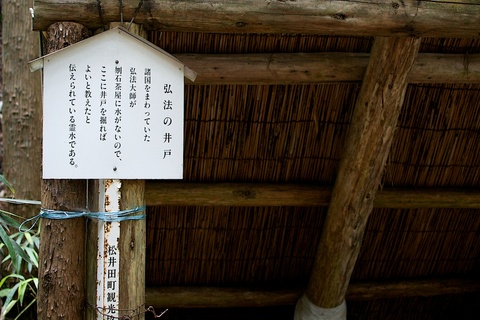 弘法の井戸
諸国をまわっていた
弘法大師が
刎石茶屋に水がないので、
ここに井戸を掘れば
よいと教えたと
伝えられている霊水である。
松井田町観光